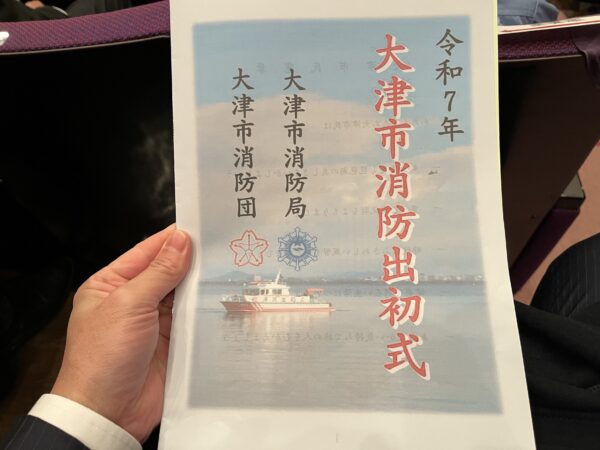 令和7年
大津市消防出初式
大津市消防局
大津市消防団